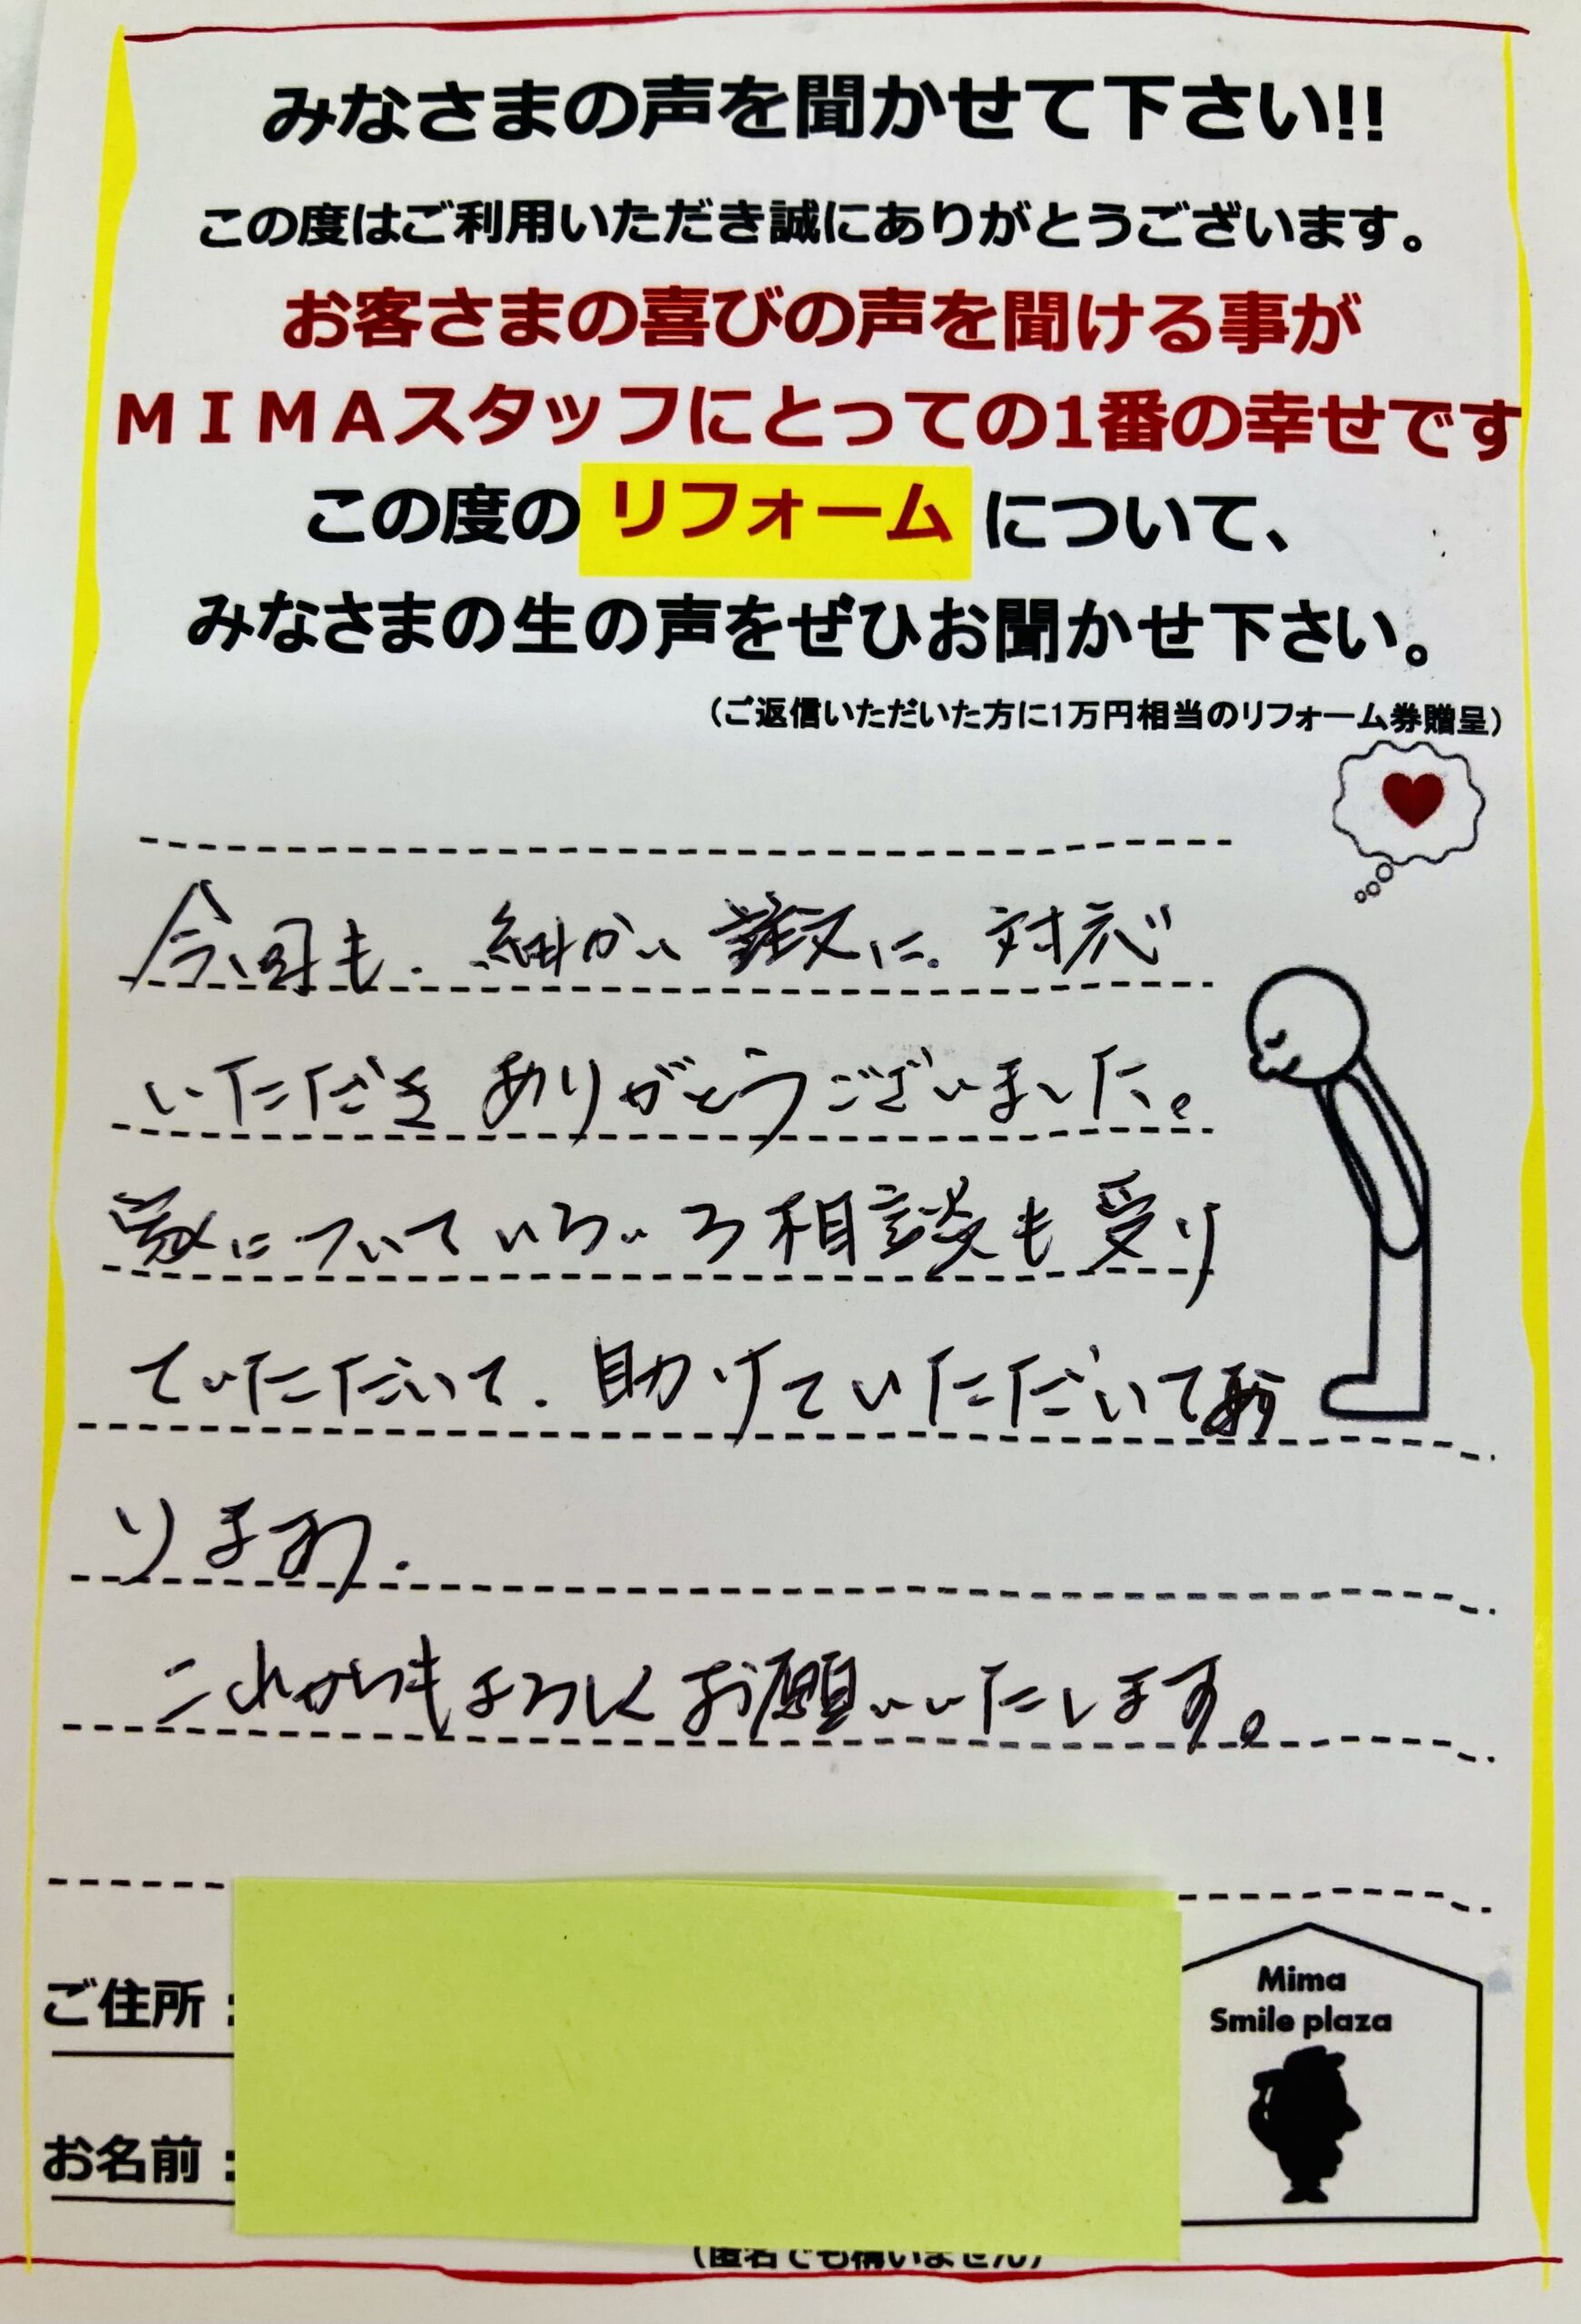 みなさまの声を聞かせて下さい!!
この度はご利用いただき誠にありがとうございます。
お客さまの喜びの声を聞ける事が
ＭＩＭＡスタッフにとっての1番の幸せです
この度の リフォーム について、
みなさまの生の声をぜひお聞かせ下さい。
（ご返信いただいた方に1万円相当のリフォーム券贈呈）
今回も、細かい に、対応
いただき ありがとうございました。
家についていろいろ相談も受け
ていただいて、助けていただいてお
ります。
これからもよろしくお願いいたします。
ご住所：
お名前：
Mima
Smile plaza
（匿名でも構いません）